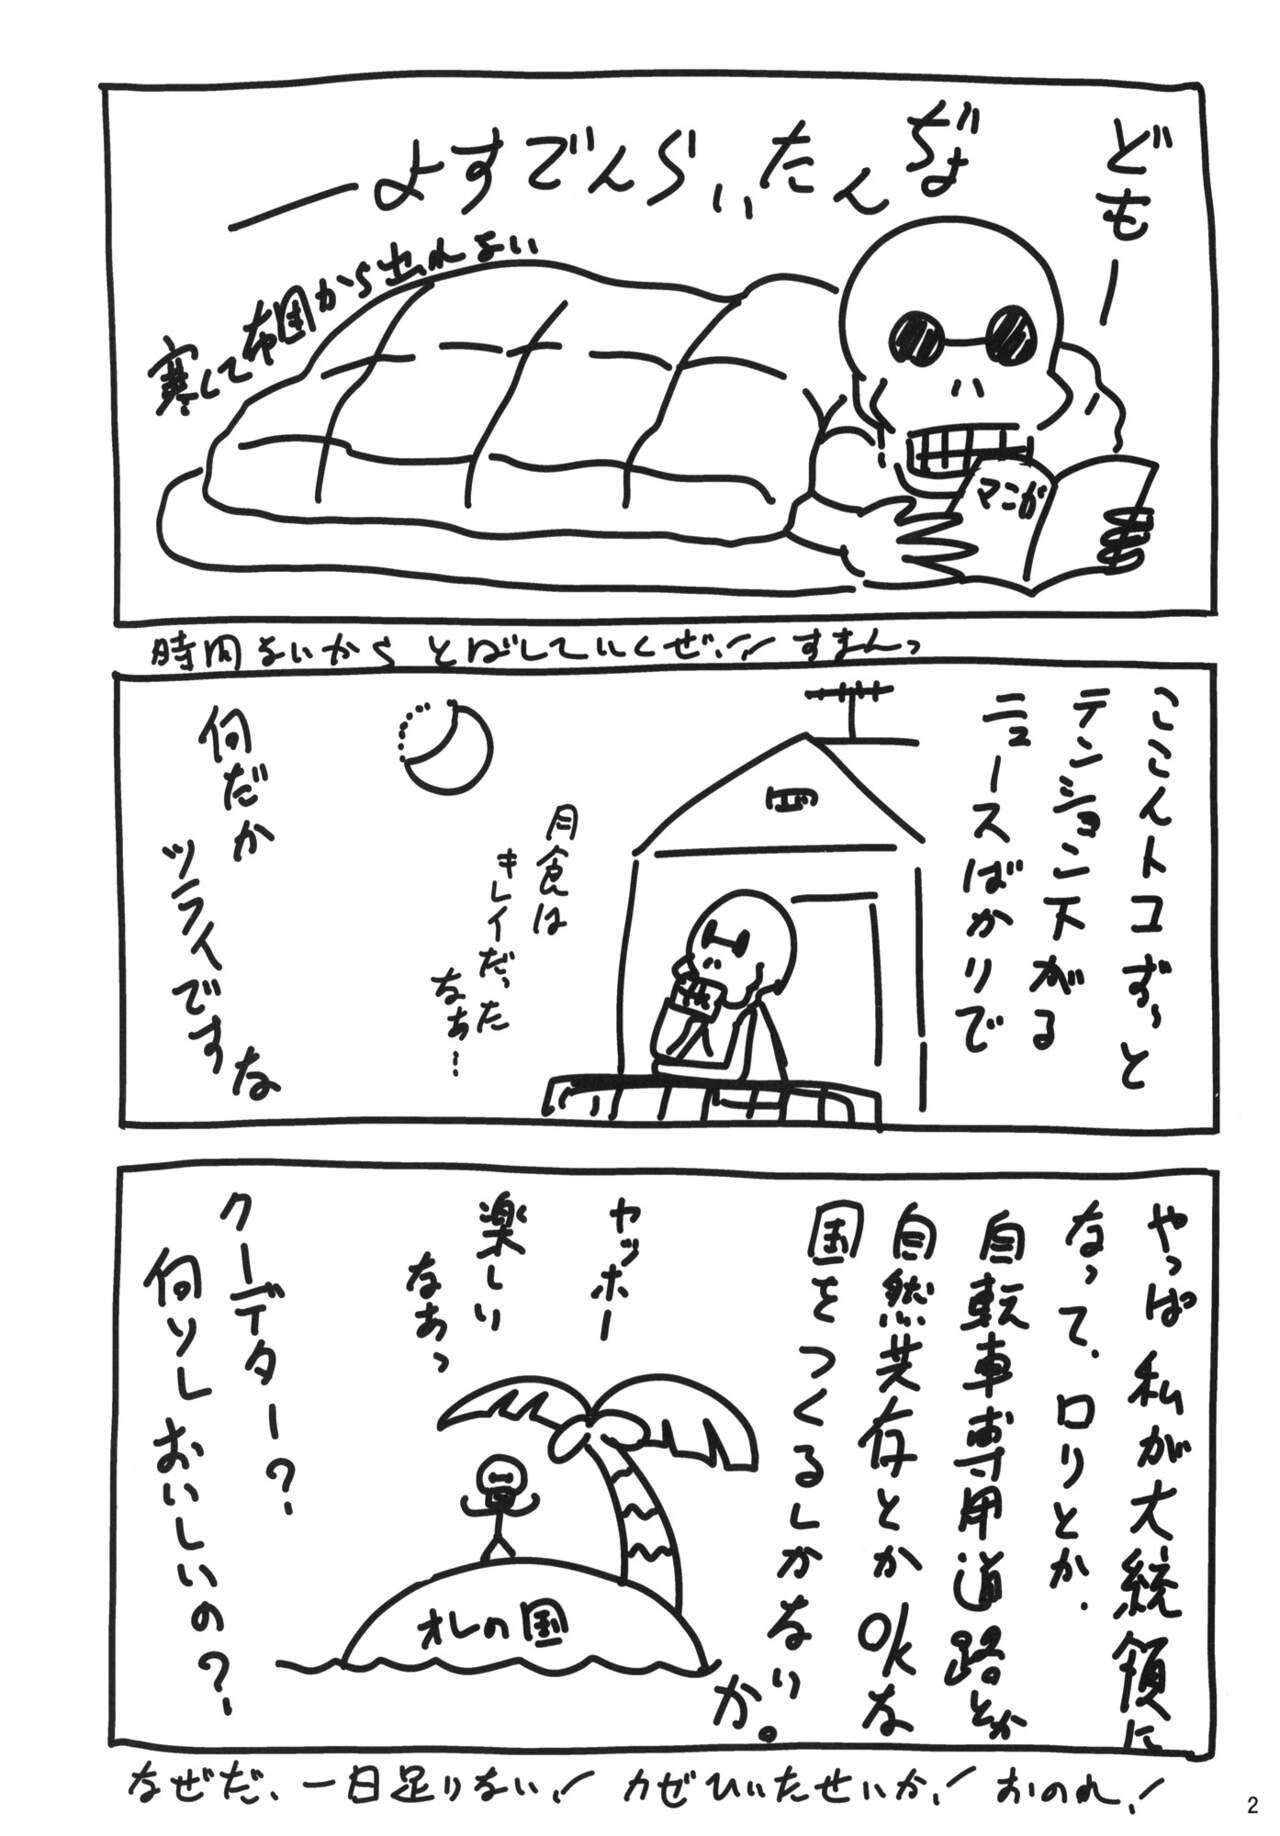 どもー
ぢょ
たんいらんですよー
寒くて布団から出れない
マンガ
時間ないから とばしていくぜ!! すまんっ
ここんトコずっと
テンション下がる
ニュースばかりで
月食は
キレイだった
なぁ…
何だか
ツライですな
やっぱ 私が大統領に
なって、ロリとか、
自転車専用道路とか
自然共存とかOKな
国をつくるしかないか。
ヤッホー
楽しい
なあっ
オレの国
クーデター?
何ソレおいしいの?
なぜだ、一日足りない! カゼひいたせいか! おのれ!
2